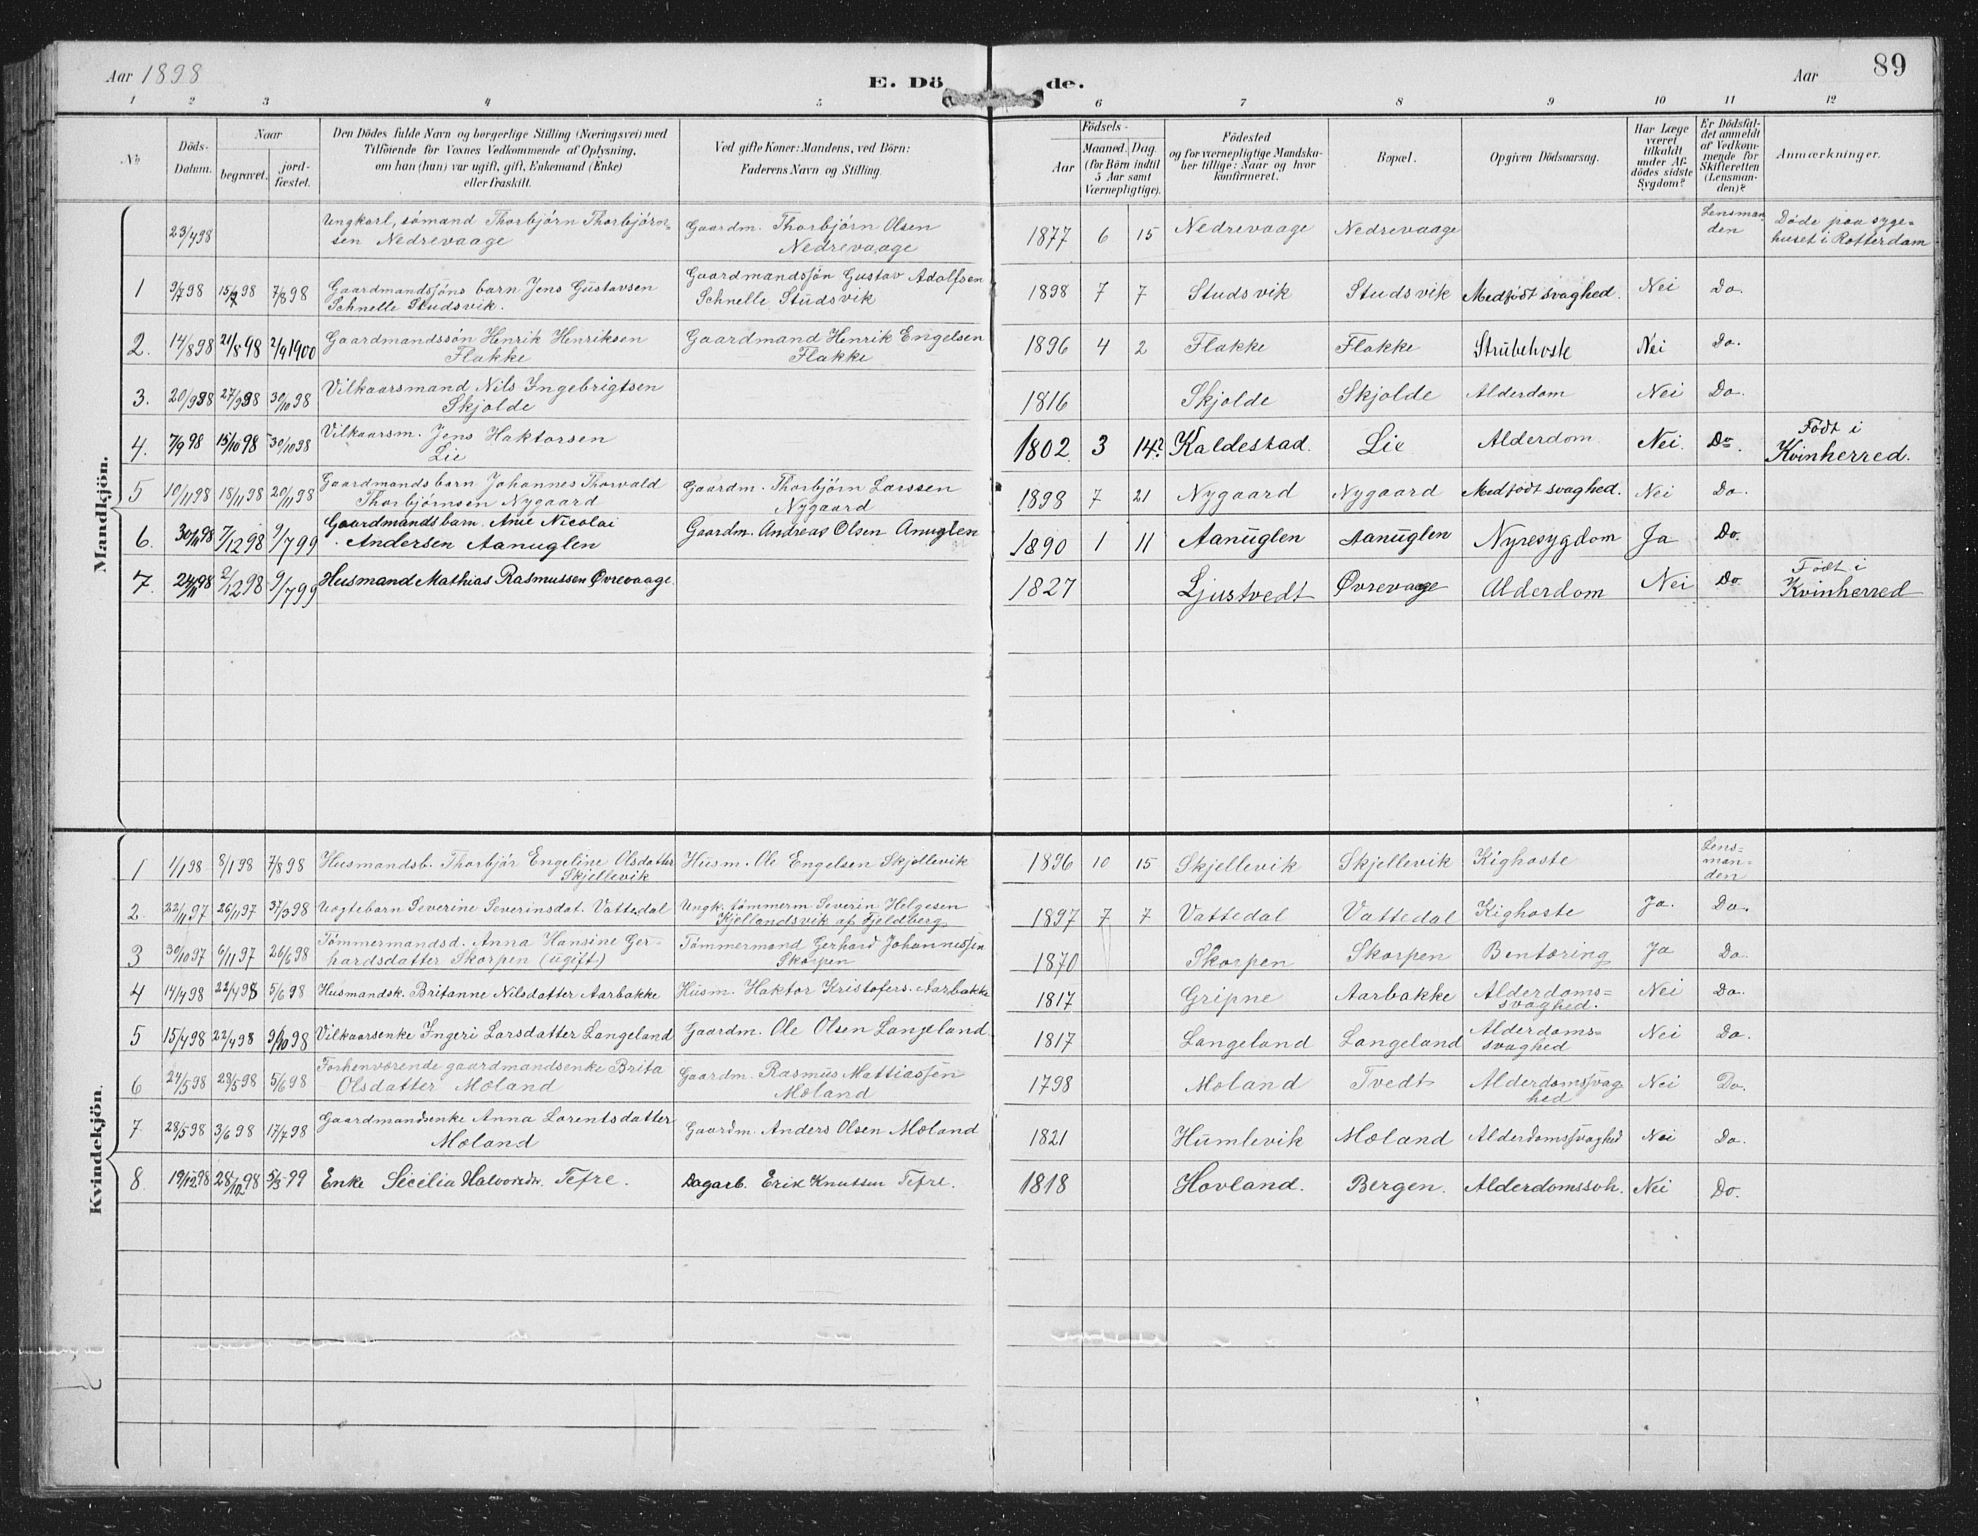 Aar 1898
E. Dö
de.
Aar
89
1 2 3 4 5 6 7 8 9 10 11 12
No
Döds-Datum.
Naar
begravet.
jord-fæstet.
Den Dödes fulde Navn og borgerlige Stilling (Næringsvei) med
Tilföiende for Voxnes Vedkommende af Oplysning,
om han (hun) var ugift, gift, Enkemand (Enke)
eller fraskilt.
Ved gifte Koner: Mandens, ved Börn:
Faderens Navn og Stilling.
Födsels-
Aar
Maaned. Dag.
(for Börn indtil
5 Aar samt
Værnepligtige).
Födested
og for værnepligtige Mandska-
ber tillige: Naar og hvor
konfirmeret.
Bopæl.
Opgiven Dödsaarsag.
Har Læge
været
tilkaldt
under Af-
dödes sidste
Sygdom?
Er Dödsfal-
det anmeldt
af Vedkom-
mende for
Skifteretten
(Lensman-
den)?
Anmærkninger.
Mandkjön.
23/4 98 Ungkarl, sömand Thorbjörn Thorbjörn-
sen Nedrevaage Gaardm. Thorbjörn Olsen
Nedrevaage 1877 6 15 Nedrevaage Nedrevaage Lensman
den Döde paa syge-
huset i Rotterdam
1 9/7 98 15/7 98 7/8 98 Gaardmandsjöns barn Jens Gustavsen
Schnelle Studsvik. Gaardmandsjön Gustav Adolfsen
Schnelle Studsvik 1898 7 7 Studsvik Studsvik Medfödt svaghed. Nei Do.
2. 14/8 98 21/8 98 2/9 1900 Gaardmandssön Henrik Henriksen
Flakke Gaardmand Henrik Engelsen
Flakke 1896 4 2 Flakke Flakke Strubehoste Nei Do.
3. 20/9 98 27/9 98 30/10 98 Vilkaarsmand Nils Ingebrigtsen
Skjolde 1816 Skjolde Skjolde Alderdom Nei Do.
4. 7/9 98 15/10 98 30/10 98 Vilkaarsm. Jens Haktorsen
Lie 1802. 3 14? Kaldestad. Lie Alderdom. Nei. Do. Födt i
Kvinherred.
5 10/11 98 18/11 98 20/11 98 Gaardmandsbarn Johannes Thorvald
Thorbjörnsen Nygaard Gaardm. Thorbjörn Larssen
Nygaard 1898 7 21 Nygaard Nygaard Medfödt svaghed. Nei Do.
6. 30/11 98 7/12 98 9/7 99 Gaardmandsbarn. Nicolai
Andersen Aanuglen Gaardm. Andreas Olsen Anuglen 1890 1 11 Aanuglen Aanuglen Nyresygdom Ja Do.
7. 24/11 98 2/12 98 9/7 99 Husmand Mathias Rasmussen Øvrevaage. 1827 Ljustvedt Øvrevaage Alderdom Nei Do Födt i
Kvinherred
Kvindekjön.
1 1/1 98 8/1 98 7/8 98 Husmandsb. Thorbjör Engeline Olsdatter
Skjellevik Husm. Ole Engelsen Skjellevik 1896 10 15 Skjellevik Skjellevik Kighoste Lens-
man-
den
2. 22/11 97 26/11 97 31/3 98 Uegtebarn Severine Severinsdat. Vattedal Ungk. tömmerm Severin Helgesen
Kjellandsvik af Fjeldberg 1897 7 7 Vattedal Vattedal Kighoste Ja. Do.
3 30/10 97 6/11 97 26/6 98 Tömmermandsd. Anna Hansine Ger-
hardsdatter Skorpen (ugift) Tömmermand Gerhard Johannesjen
Skorpen 1870 Skorpen Skorpen Bentæring Ja Do.
4 14/4 98 22/4 98 5/6 98 Husmandsk. Britanne Nilsdatter Aarbakke Husm. Haktor Kristofers. Aarbakke 1817 Gripne Aarbakke Alderdoms=
svaghed. Nei Do.
5 15/4 98 22/4 98 9/10 98 Vilkaarsenke Ingeri Larsdatter Langeland Gaardm. Ole Olsen Langeland 1817 Langeland Langeland Alderdoms=
svaghed Nei Do.
6 24/5 98 28/5 98 5/6 98 Forhenværende gaardmandsenke Brita
Olsdatter Mæland Gaardm. Rasmus Mattiassen
Mæland 1798 Mæland Tvedt Alderdomssvag
hed Nei Do.
7 28/5 98 3/6 98 17/7 98 Gaardmandsenke Anna Lorentsdatter
Mæland Gaardm. Anders Olsen Mæland 1821 Humlevik Mæland Alderdomssvaghed Nei Do.
8. 19/12 98 28/12 98 5/3 99 Enke Sicilia Halvorsdr. Tefre. Dagarb. Erik Knutsen Tefre. 1818 Hovland. Bergen. Alderdomssvh. Nei Do.